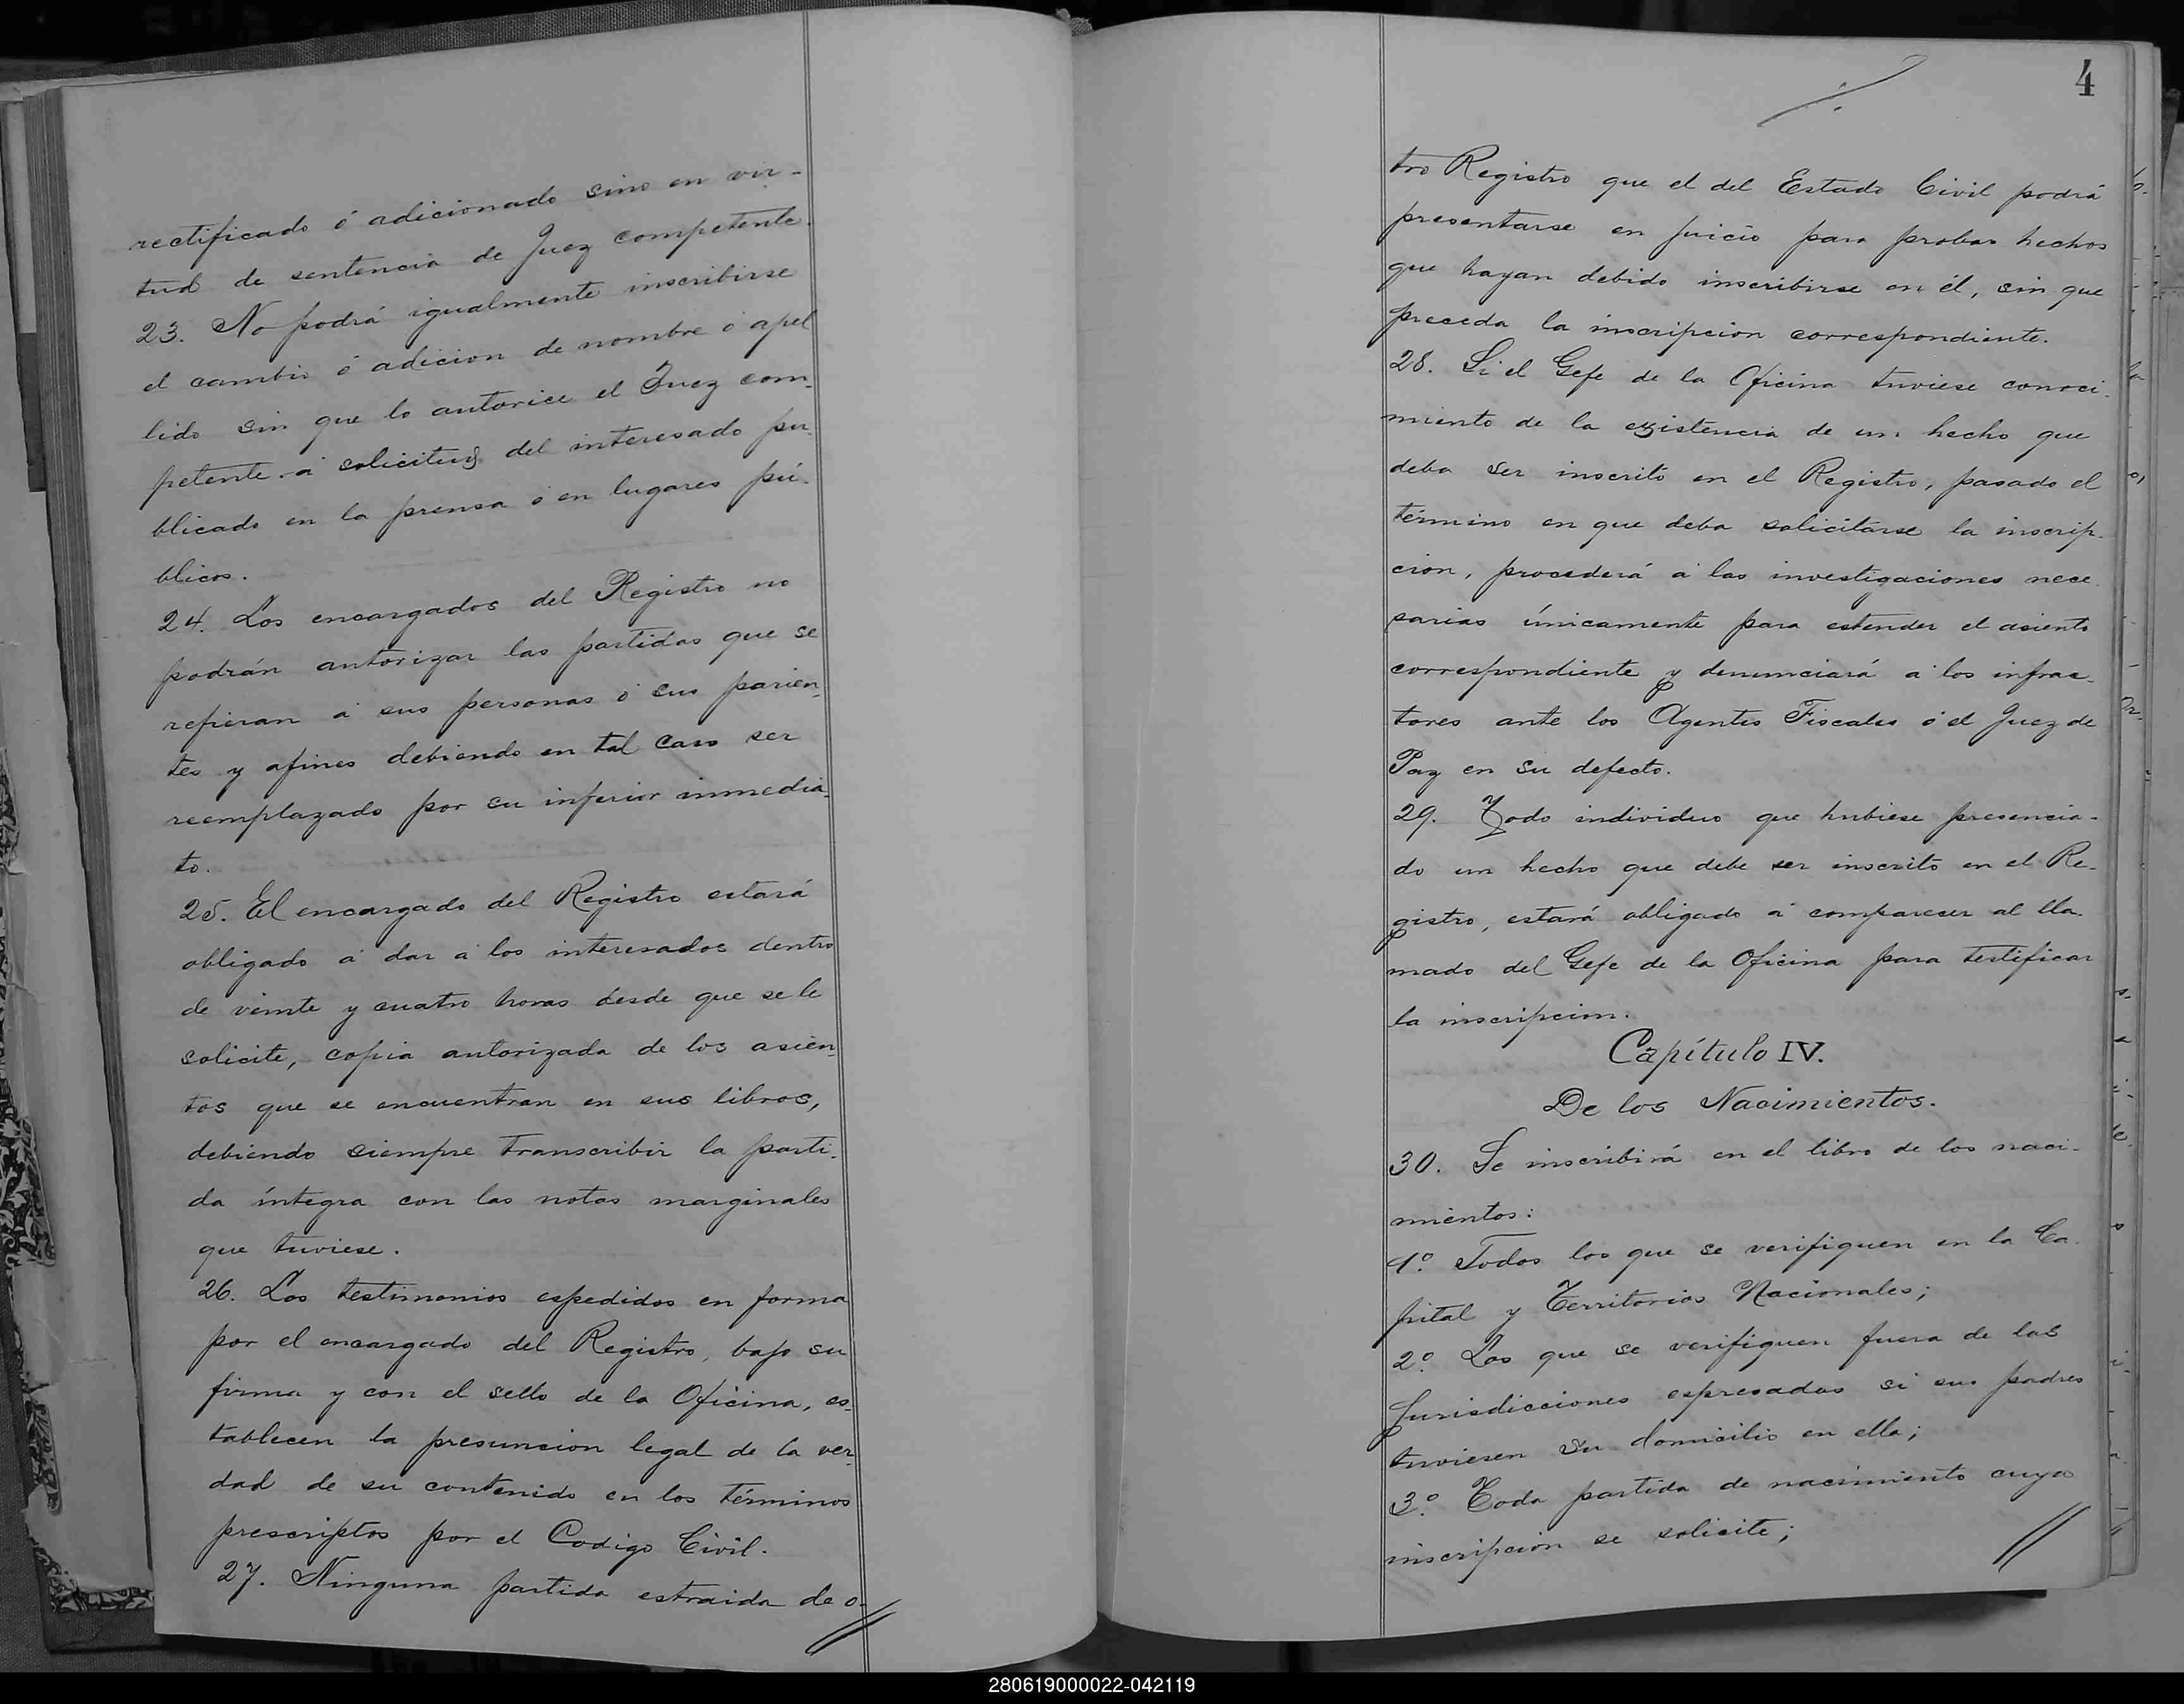 rectificado ó adicionado sino en vir-
tud de sentencia de Juez competente.
23. No podrá igualmente inscribirse
el cambio ó adicion de nombre ó apel
lido sin que lo autorice el Juez com-
petente á solicitud del interesado pu-
blicado en la prensa ó en lugares pú-
blicos.
24. Los encargados del Registro no
podrán autorizar las partidas que se
refieran á sus personas ó sus parien-
tes y afines debiendo en tal caso ser
reemplazado por su inferior inmedia-
to.
25. El encargado del Registro estará
obligado á dar á los interesados dentro
de veinte y cuatro horas desde que se le
solicite, copia autorizada de los asien-
tos que se encuentran en sus libros,
debiendo siempre transcribir la parti-
da íntegra con las notas marginales
que tuviese.
26. Los testimonios espedidos en forma
por el encargado del Registro, bajo su
firma y con el sello de la Oficina, es-
tablecen la presuncion legal de la ver-
dad de su contenido en los términos
prescriptos por el Codigo Civil.
27. Ninguna partida estraida de o-
4
tro Registro que el del Estado Civil podrá
presentarse en juicio para probar hechos
que hayan debido inscribirse en él, sin que
preceda la inscripcion correspondiente.
28. Si el Gefe de la Oficina tuviese conoci-
miento de la existencia de un hecho que
deba ser inscrito en el Registro, pasado el
término en que deba solicitarse la inscrip-
cion, procederá á las investigaciones nece-
sarias únicamente para estender el asiento
correspondiente y denunciará á los infrac-
tores ante los Agentes Fiscales ó el Juez de
Paz en su defecto.
29. Todo individuo que hubiese presencia-
do un hecho que debe ser inscrito en el Re-
gistro, estará obligado á comparecer al lla-
mado del Gefe de la Oficina para testificar
la inscripcion.
Capítulo IV.
De los Nacimientos.
30. Se inscribirá en el libro de los naci-
mientos:
1º. Todos los que se verifiquen en la Ca-
pital y Territorios Nacionales;
2º. Los que se verifiquen fuera de las
Jurisdicciones espresadas si sus padres
tuviesen su domicilio en ella;
3º. Toda partida de nacimiento cuya
inscripcion se solicite;
280619000022-042119